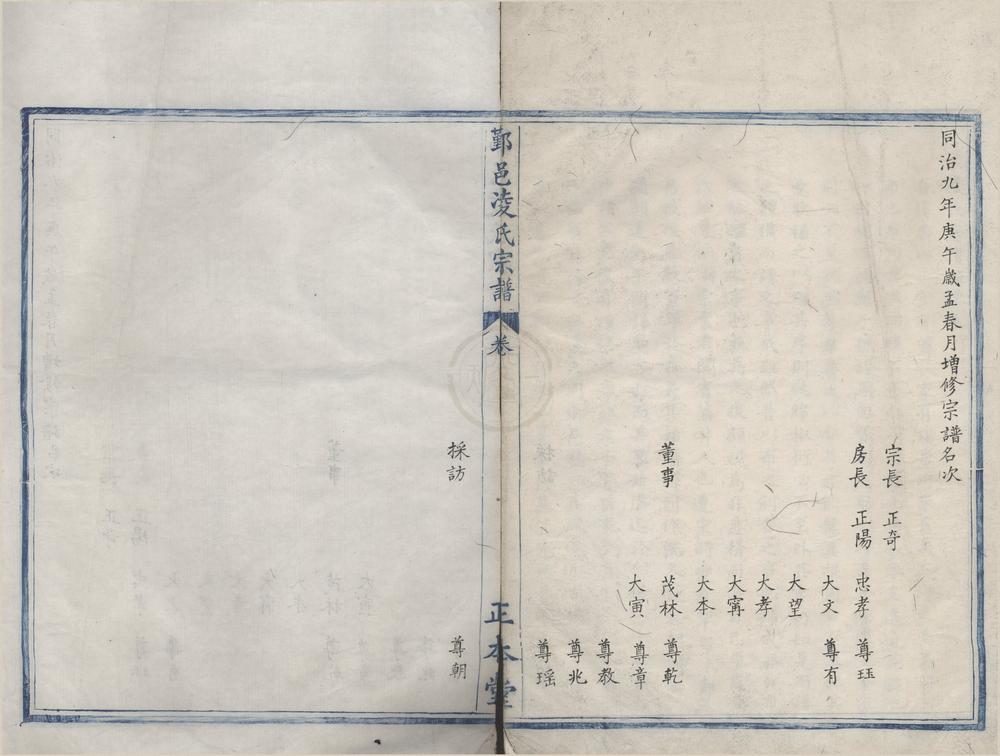 同治九年庚午歲孟春月增修宗譜名次
宗長 正奇
房長 正陽 忠孝 尊珏
大文 尊有
大望
大孝
大寗
大本
董事 茂林 尊乾
大寅 尊章
尊教
尊兆
尊瑶
鄞邑凌氏宗譜 卷 正本堂
採訪 尊朝